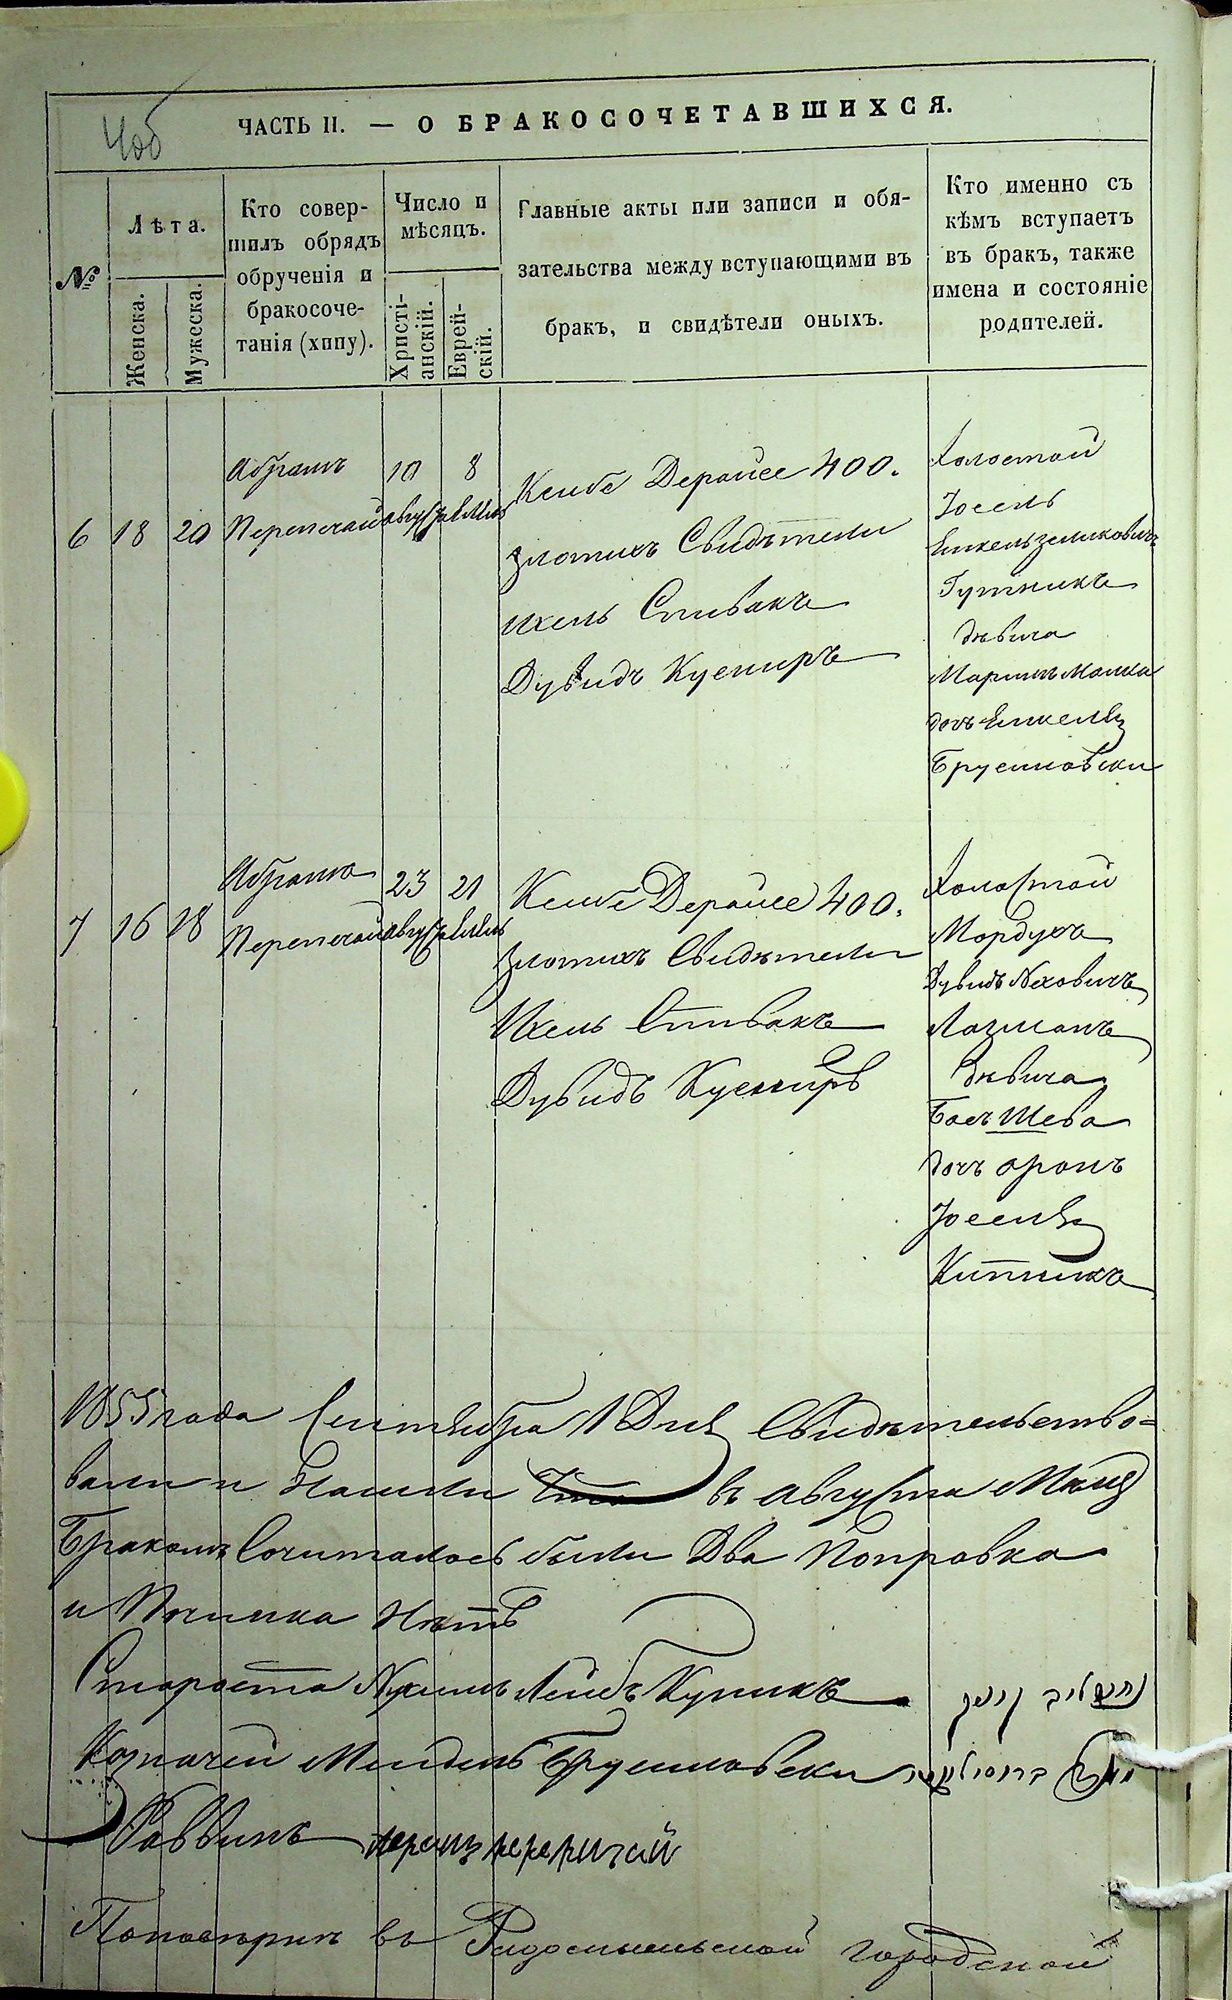 ЧАСТЬ II. — О БРАКОСОЧЕТАВШИХСЯ.
№
Лѣта.
Женска.
Мужеска.
Кто совер-
шилъ обрядъ
обрученія и
бракосоче-
танія (хипу).
Число и
мѣсяцъ.
Христі-
анскій.
Еврей-
скій.
Главные акты или записи и обя-
зательства между вступающими въ
бракъ, и свидѣтели оныхъ.
Кто именно съ
кѣмъ вступаетъ
въ бракъ, также
имена и состояніе
родителей.
6 18 20
Абрамъ
Перепечай
10
8
Ксибе Дерайсе 400.
злотихъ Свидѣтели
Ихель Спивакъ
Дувидъ Кусниръ
Холостой
Іосель
Гутникъ
дѣвица
Малка
дочъ
Брусиловски
7 16 18
Абрамъ
Перепечай
23
21
Ксибе Дерайсе 400.
злотихъ Свидѣтели
Ихель Спивакъ
Дувидъ Кусниръ
Холостой
Мордухъ
Дувидъ
Лозманъ
дѣвица
Бась Шева
дочъ Аронъ
Китникъ
1855 года Сентября 1 Дня Свидѣтельство=
вали и Нашли въ Августа
Бракомъ были Два Поправка
и Почичка Нѣтъ
Староста Лейбъ Куникъ
Казначей Мендель Брусиловски
Раввинъ перепичай
въ Радомысльской городской